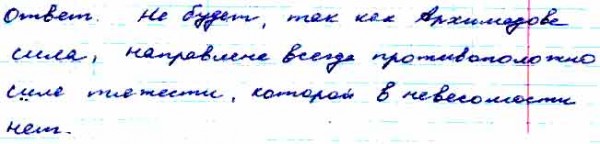 Ответ. Не будет, так как Архимедова
сила, направлена всегда противоположно
силе тяжести, которой в невесомости
нет.